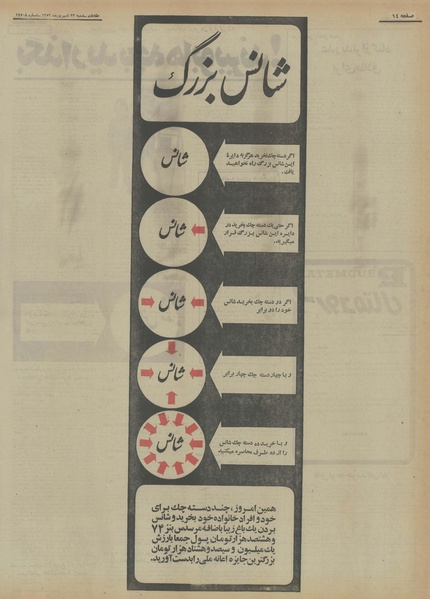 صفحه ۱۴
شانس بزرگ
اگر دسته چك نخرید هرگز به دایرهٔ
این شانس بزرگ راه نخواهید
یافت.
شانس
اگر حتی یك دسته چك بخرید در
دایره این شانس بزرگ قرار
میگیرید.
شانس
اگر دو دسته چك بخرید شانس
خود را دو برابر
شانس
و با چهار دسته چك چهار برابر
شانس
و با خرید ده دسته چك شانس
را از ده طرف محاصره میکنید
شانس
همین امروز، چند دسته چك برای
خود و افراد خانواده خود بخرید و شانس
بردن یك باغ زیبا باضافه مرسدس بنز ۷۴
و هشتصد هزار تومان پول جمعا بارزش
یك میلیون و سیصد و هشتاد هزار تومان
بزرگترین جایزه اعانه ملی را بدست آورید.